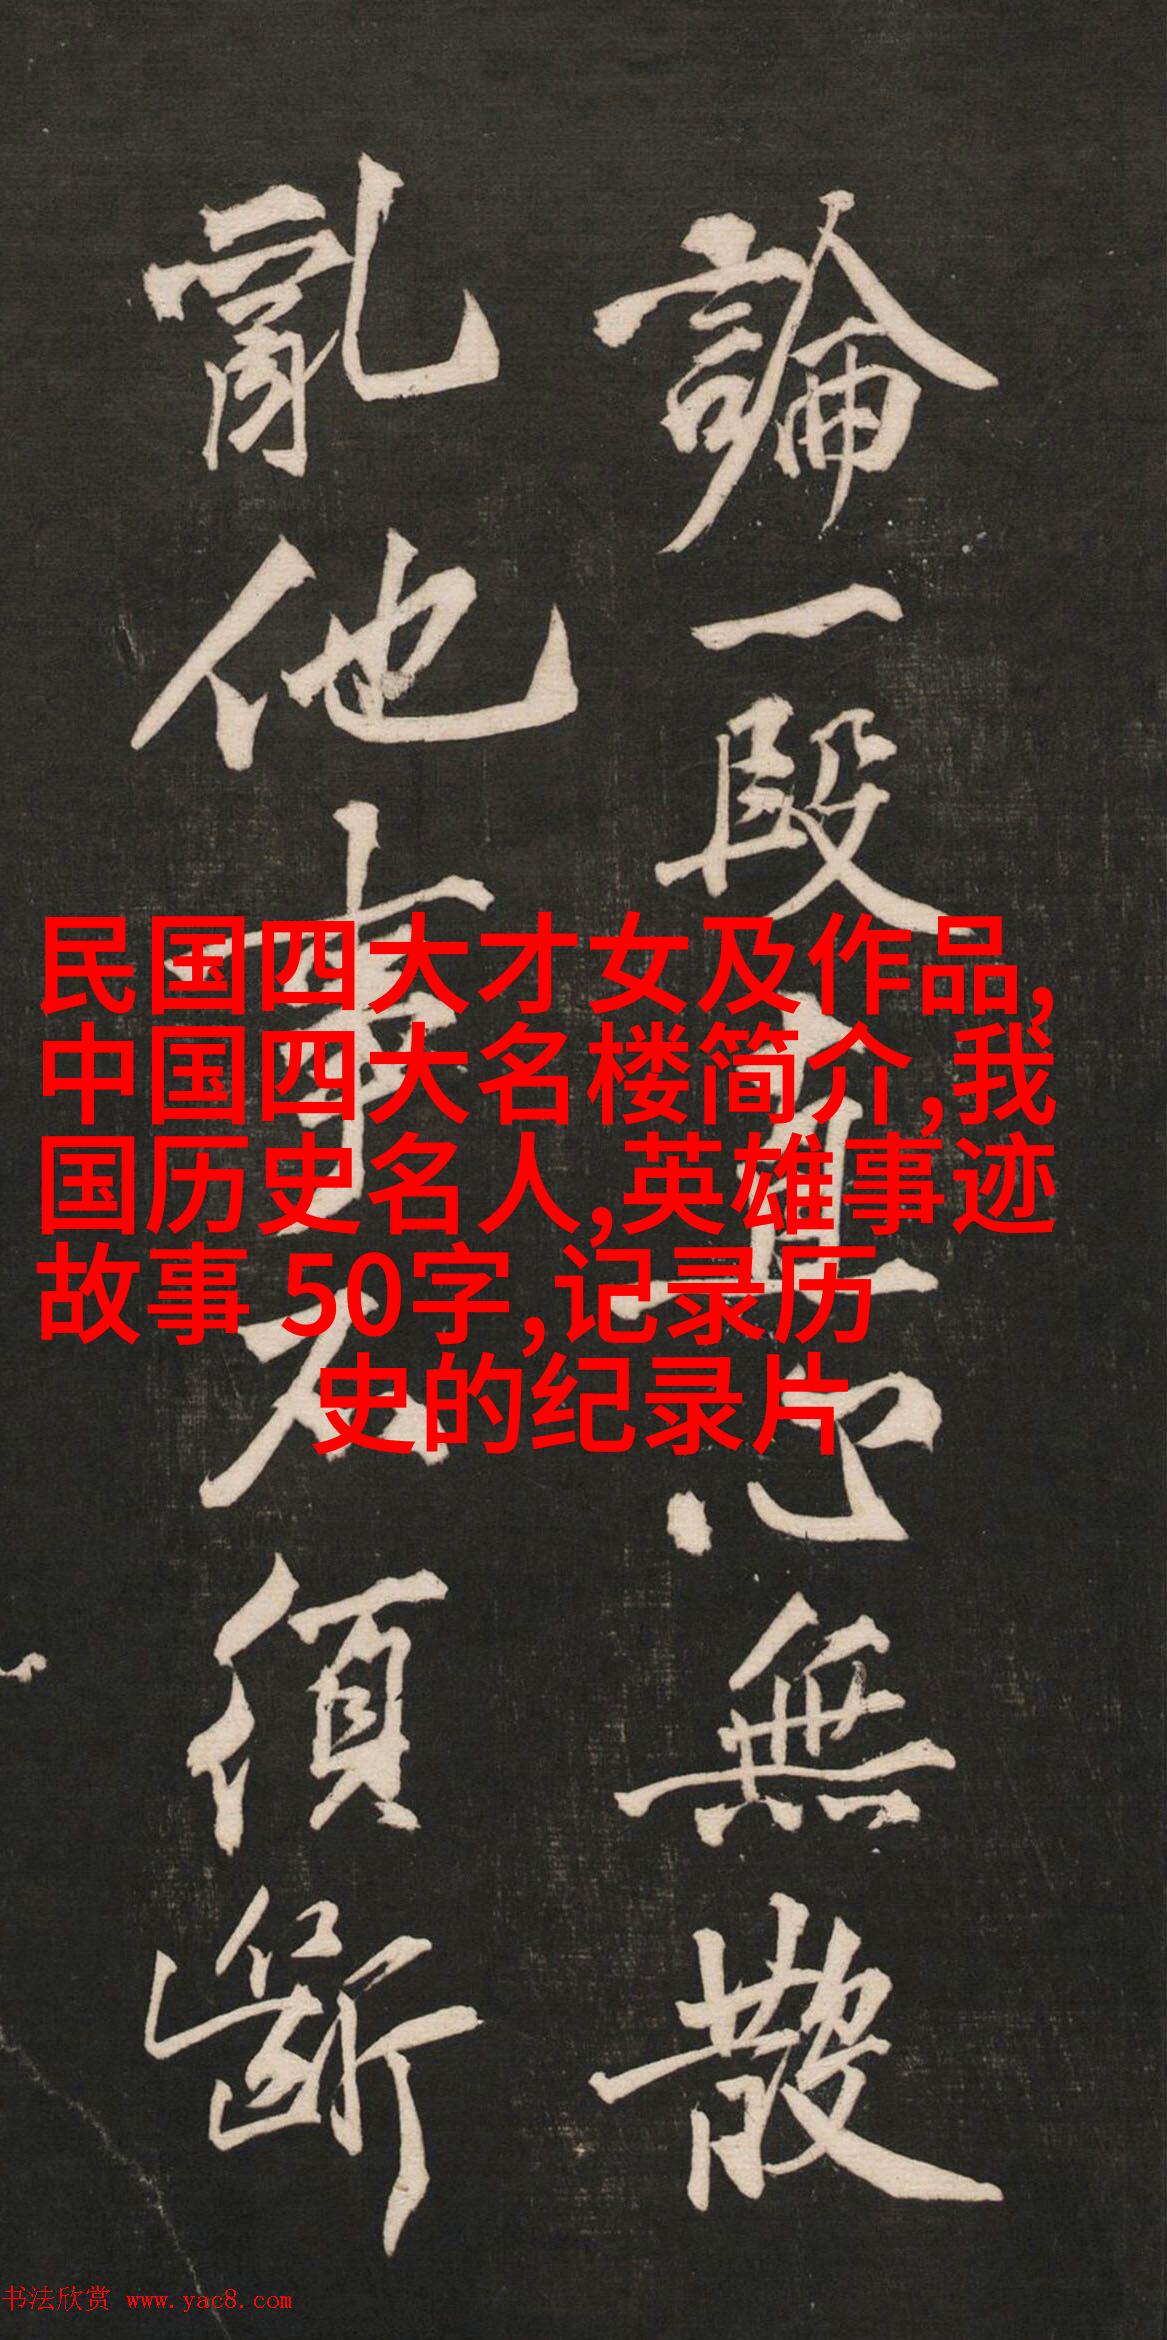 論一段真心無散
亂他事不須斷
民国四大才女及作品,
中国四大名楼简介,我
国历史名人,英雄事迹
故事 50字,记录历
史的纪录片
书法欣赏 www.yac8.com